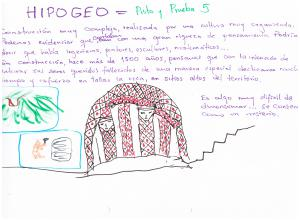 HIPOGEO = Mito y Prueba 5
Construcción muy compleja, realizada por una cultura muy organizada.
Podemos evidenciar que con una gran riqueza de pensamiento. Podría
decir que había ingenieros, pintores, escultores, matemáticos...
construcción, hace más de 1500 años, pensamos que con la intención de
sus seres queridos fallecidos de una manera especial dedicaron mucho
tiempo y esfuerzo en en sitios altos del territorio.
Es algo muy difícil de
dimensionar... se conserva
como un misterio.